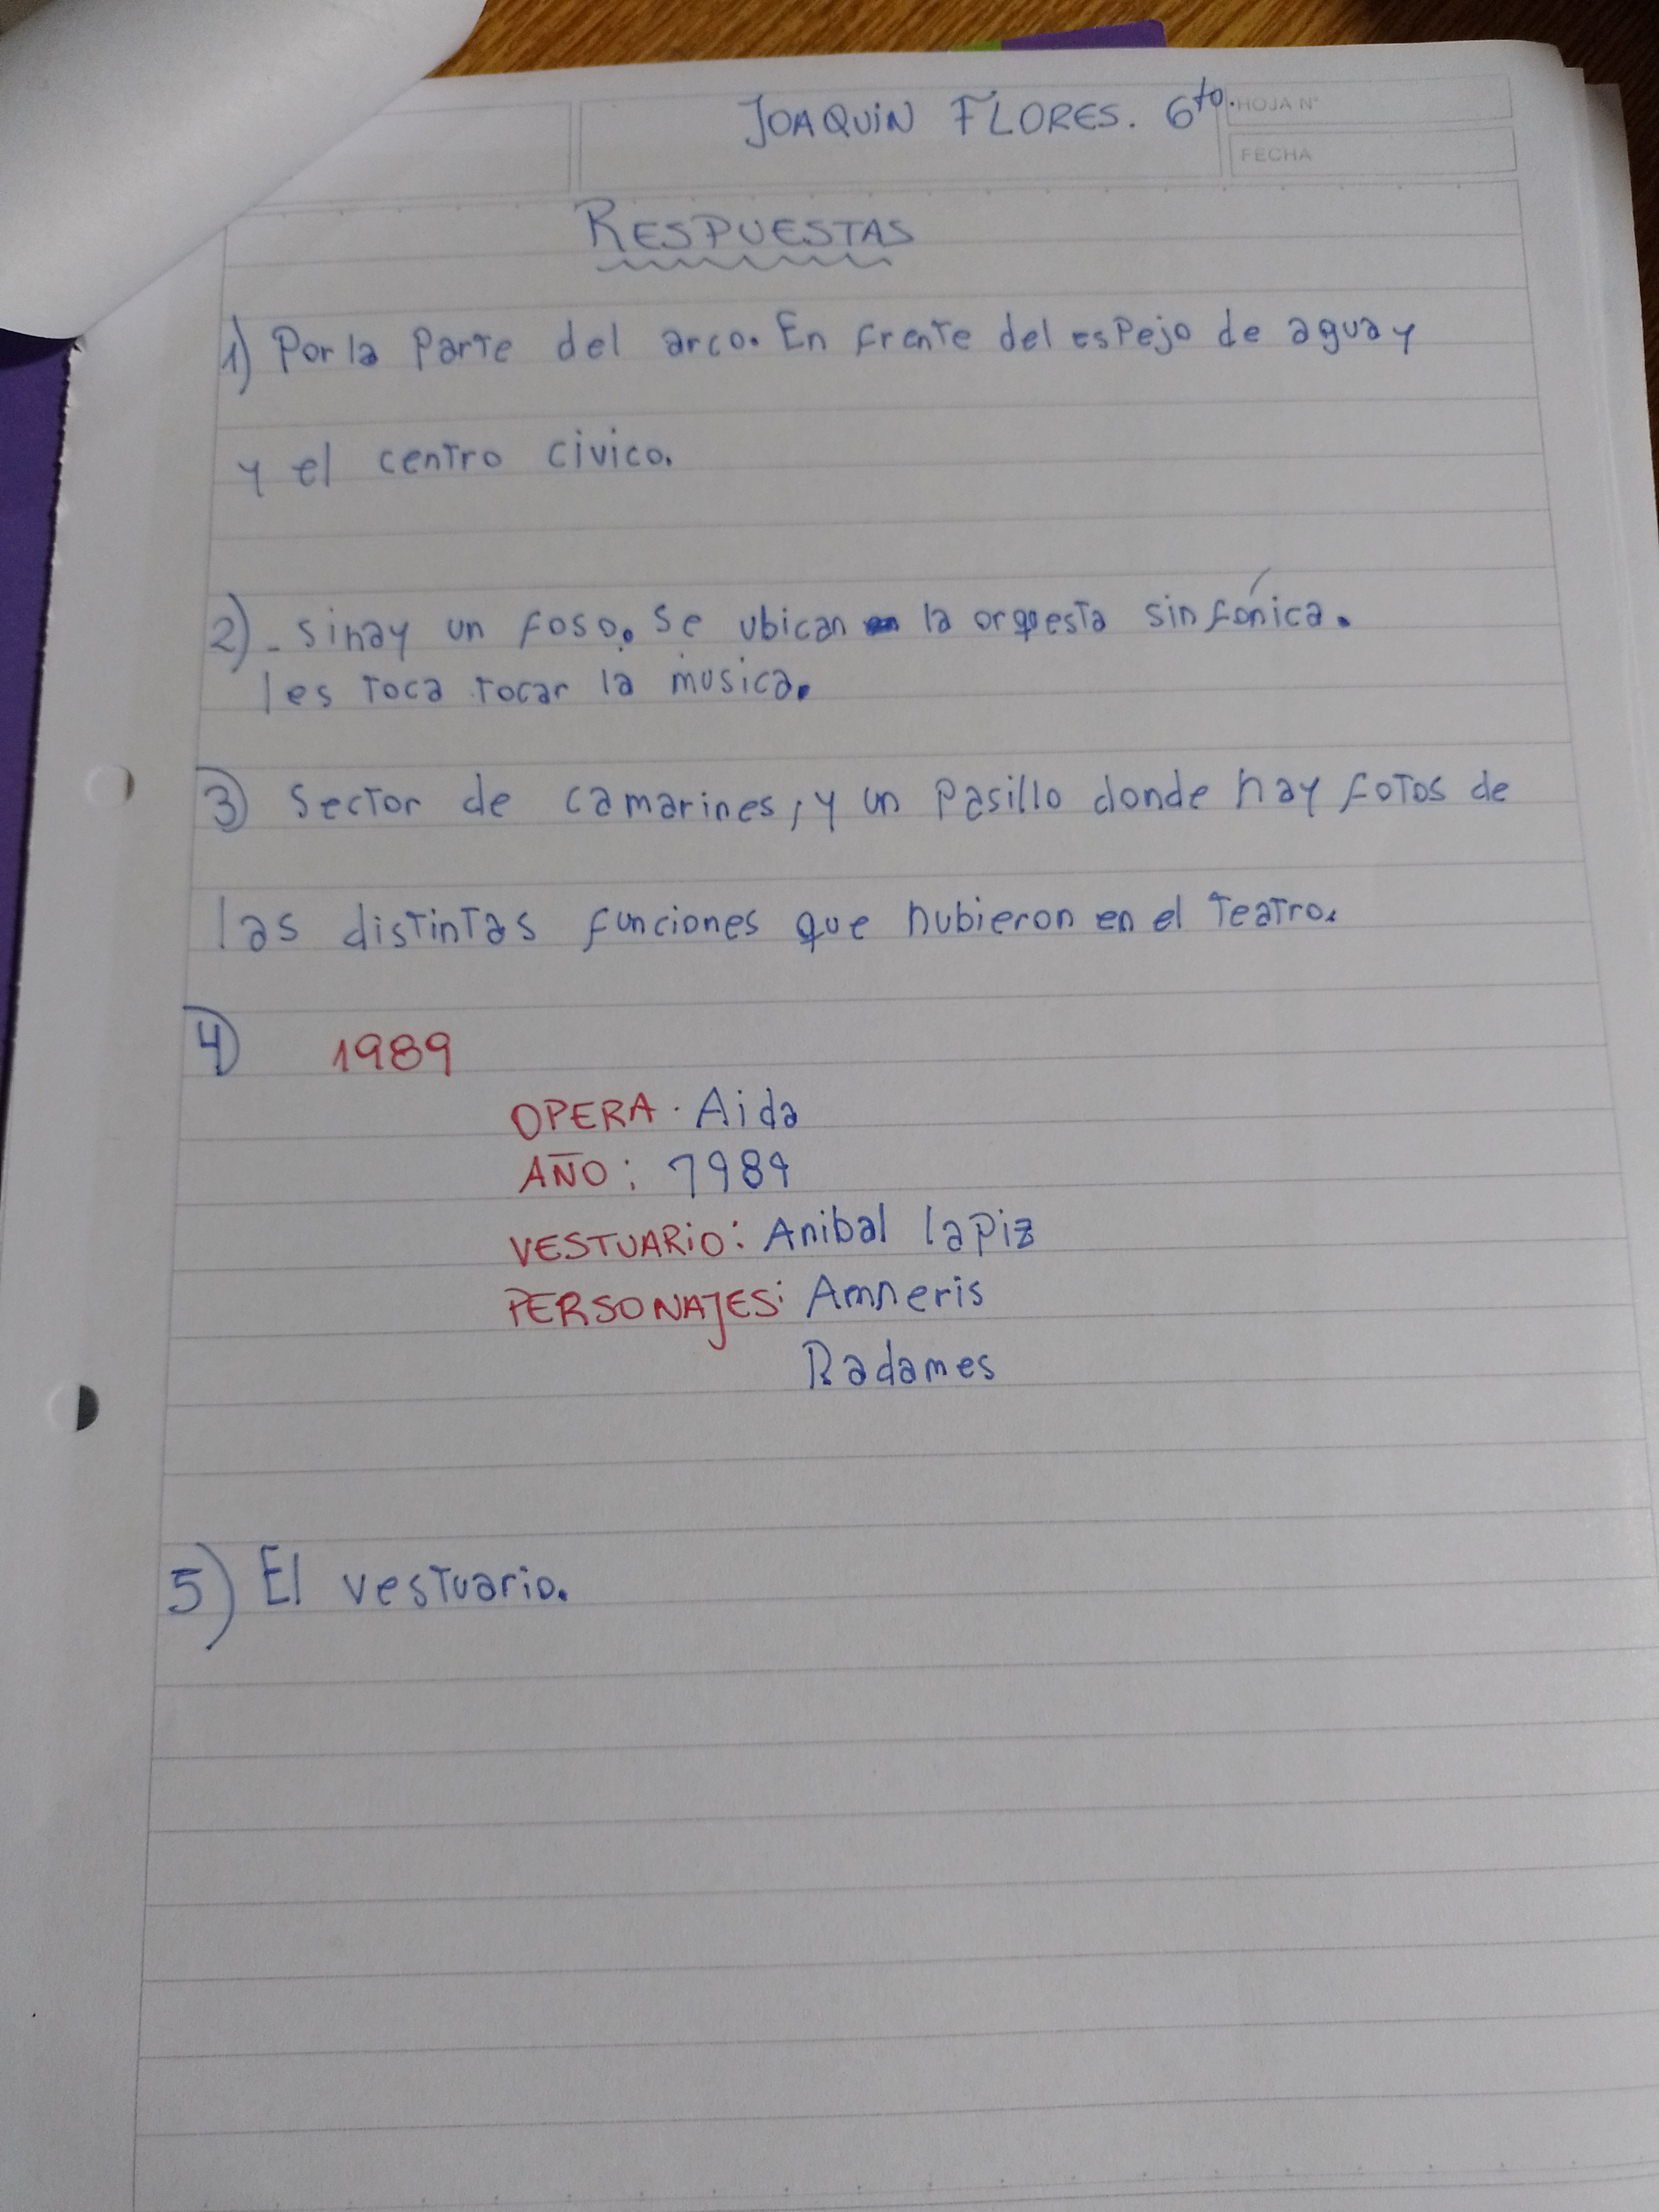 JOAQUIN FLORES. 6to.
HOJA N°
FECHA
RESPUESTAS
1) Por la parte del arco. En frente del espejo de agua y
y el centro civico.
2)- si hay un foso. Se ubican la orquesta sinfónica.
les toca tocar la musica.
3) Sector de camarines, y un pasillo donde hay fotos de
las distintas funciones que hubieron en el teatro.
4) 1989
OPERA. Aida
AÑO: 1989
VESTUARIO: Anibal lapiz
PERSONAJES: Amneris
Radames
5) El vestuario.